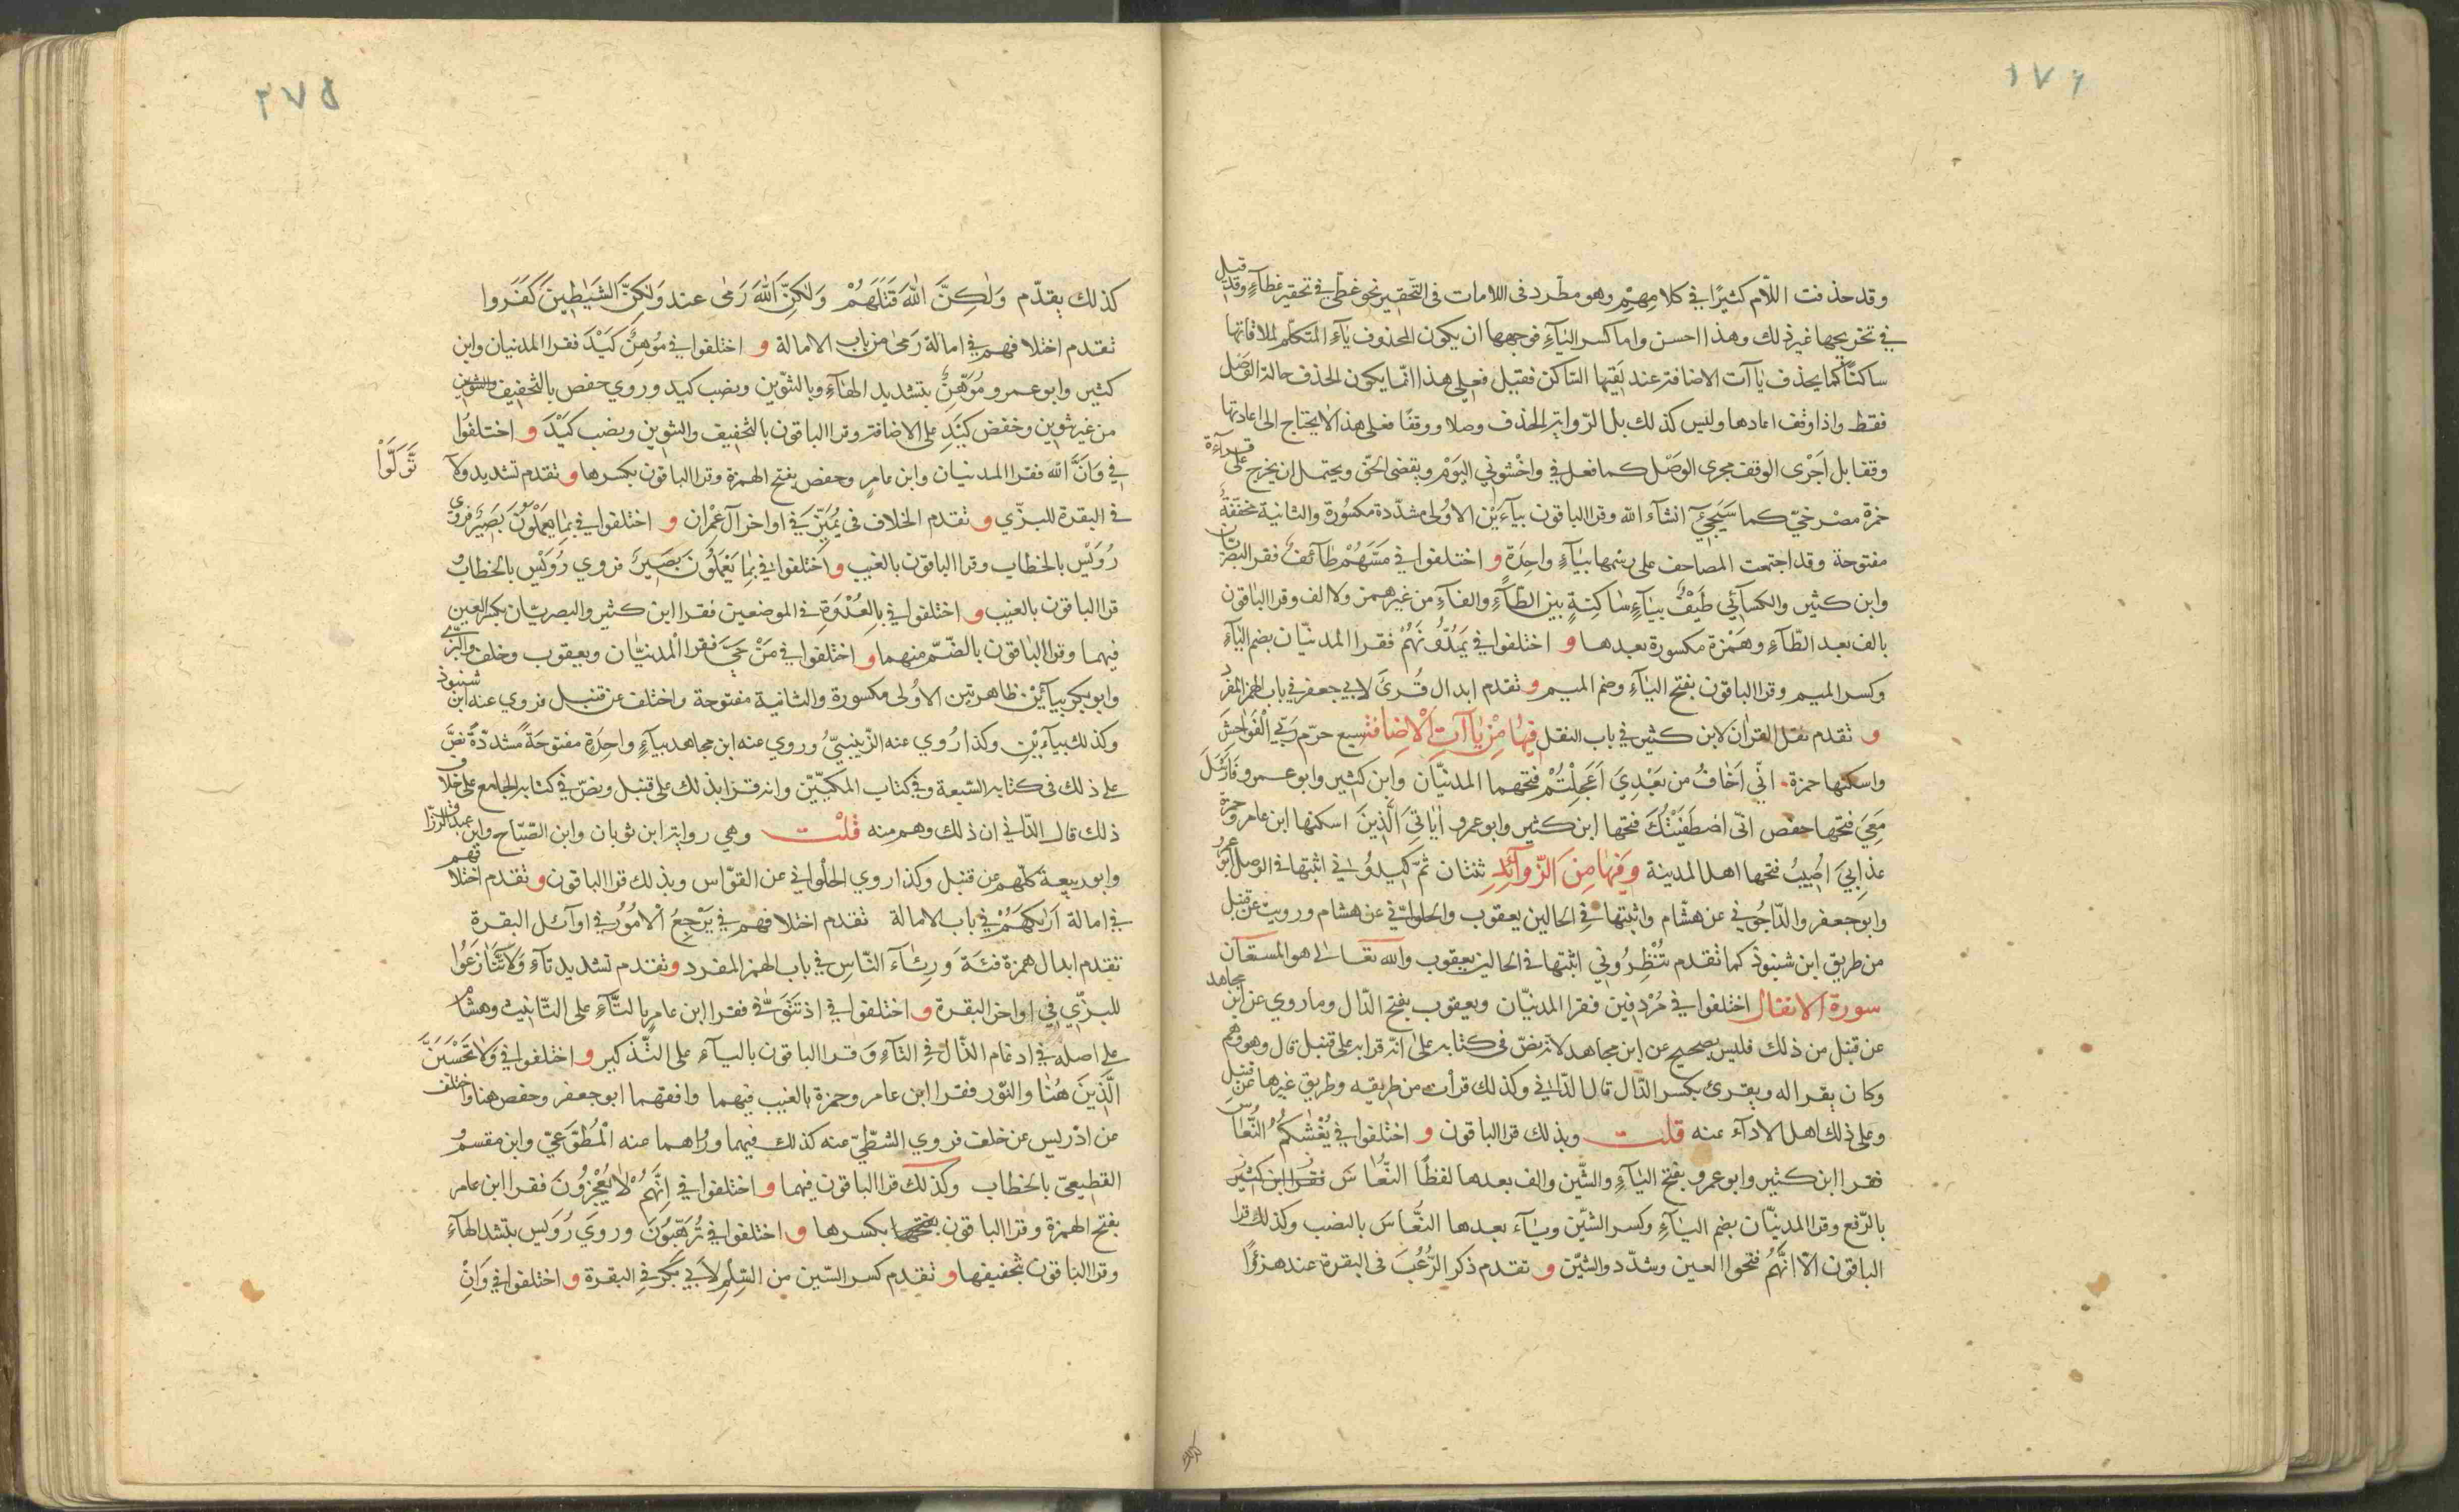 ١٧٦
وقد حذفت اللّام كثيرًا في كلامهم وهو مطّرد فى اللامات فى التّحقير نحو غطّي في تحقير غطآءٍ وقد قيل
في تخريجها غير ذلك وهذا احسن واما كسر اليآءِ فوجهها ان يكون المحذوف يآءَ المتكلّم لملاقاتها
ساكنًا كما يحذف ياآت الاضافة عند لقيها السّاكن فقيل فعلى هذا انّما يكون الحذف حالة الوصل
فقط واذا وقف اعادها وليس كذلك بل الرّواية الحذف وصلا ووقفًا فعلى هذا لا يحتاج الى اعادتها
وقفا بل اَجْرى الوقف مجرى الوصْل كما فعل في واخْشوني اليَوْم ويقضى الحَق ويحتمل ان يخرج على قرآءة
حمزة مصْرخيّ كما سَيَجِيْءُ انشآء الله وقرا الباقون بيآءَيْن الاوُلى مشدّدة مكسُورة والثانية مخففّةُ
مفتوحة وقد اجتمعت المصاحف على رسْمها بيآءٍ واحِدَةٍ و اختلفوا في مَسَّهُمْ طآئفٌ فقرا البصْريّان
وابن كثير والكسآئي طَيْفٌ بيآءٍ ساكنةٍ بين الطّآءِ والفآءِ من غير همز ولا الف وقرا الباقون
بالف بعد الطّآءِ وهَمْزة مكسورة بعدها و اختلفوا في يَمُدُّونَهُمْ فقرا المدنيّان بضم اليآءِ
وكسر الميم وقرا الباقون بفتح اليآءِ وضم الميم و تقدم ابدال قُرِئَ لابي جعفر في باب الهمز المفرد
و تقدم نقل القرآن لابن كثير في باب النقل فِيهَا مِنْ ياآتِ الْاِضافَةِ سبع حرّم رَبّي الْفَواحِشَ
واسكنها حمزة. انّي اَخَافُ من بَعْدِيَ اَعَجِلْتُمْ فتحهما المدنيّان وابن كثير وابو عمرو فَاَرْسِلْ
مَعِيَ فتحها حفص انّي اصْطَفَيْتُكَ فتحها ابن كثير وابو عمرو اٰياتِيَ الَّذِينَ اسكنها ابن عامر وحمزة
عذابيَ اُصِيبُ فتحها اهل المدينة وَفيهَا مِنَ الزّوآئِدِ ثنتان ثمّ كِيدُوْني اثبتها فى الوصل ابو عمرو
وابو جعفر والدّاجُوني عن هشّام واثبتها في الحالين يعقوب والحلواني عن هشام ورويت عن قنبل
من طريق ابن شنبوذ كما تقدم تُنْظِرُوني اثبتها فى الحالين يعقوب والله تعالى هو المستعان
سورة الانفال اختلفوا في مُرْدِفين فقرا المدنيّان ويعقوب بفتح الدّال وما روي عن ابن مجاهد
عن قنبل من ذلك فليس بصحيح عن ابن مجاهد لانّه نصّ فى كتابه على انّه قرا به على قنبل قال وهو وهم
وكان يقرا له ويقرئ بكسر الدّال قال الدّاني وكذلك قرأت من طريقه وطريق غيرها عن قنبل
وعلى ذلك اهل الادآء عنه قلت وبذلك قرا الباقون و اختلفوا في يُغَشّيْكُمُ النُّعَاسَ
فقرا ابن كثير وابو عمرو بفتح اليآءِ والشّين والف بعدها لفظًا النُّعَاسَ فقرا ابن كثير
بالرّفع وقرا المدنيّان بضم اليآءِ وكسر الشّين ويآء بعدها النُّعَاسَ بالنصب وكذلك قرا
الباقون الّا انَّهُم فتحوا العين وشدّدوا الشّين و تقدم ذكر الرُّعُبَ فى البقرة عند هزؤًا
٢٧٥
كذلك يقدّم وَلٰكِنَّ اللّٰهَ قَتَلَهُمْ وَلٰكِنَّ اللّٰهَ رَمٰى عند وَلٰكِنَّ الشَّيَاطِينَ كَفَرُوا
تقدم اختلافهم في امالة رَمٰى من باب الامالة و اختلفوا في مُوهِنُ كَيْدَ فقرا المدنيان وابن
كثير وابو عمرو مُوَهِّنٌ بتشديد الهآءِ وبالتنْوين ونصب كيد وروي حفص بالتخفيف
من غير تنوين وخفض كَيْدِ على الاضافة وقرا الباقون بالتخفيف والتنوين ونصب كَيْدَ و اختلفُوا
في وَاَنَّ الله فقرا المدنيان وابن عامرٍ وحفص بفتح الهمزة وقرا الباقون بكسرها و تقدم تشديد ولا
تَّوَلَّوْا
في البقرة للبزّي و تقدم الخلاف في يُميّزَ في اواخر آل عمْران و اختلفوا في بمٰا يَعْمَلُونَ بَصيرٌ فروي
رُوَيْس بالخطاب وقرا الباقون بالغيب و اختلفوا في بمٰا يَعْمَلُونَ بَصيرٌ فروي رُوَيْس بالخطاب و
قرا الباقون بالغيب و اختلفوا في بِالعُدْوَةِ في الموضعين فقرا ابن كثير والبصريّان بكسر العين
فيهما وقرا الباقون بالضّم منهما و اختلفوا في مَنْ حَيَّ فقرا المدنيّان ويعقوب وخلف والبزّي
وابو بكر بيآئَيْن ظاهرتين الاوُلى مكسورة والثانية مفتوحة واختلف عن قنبل فروي عنه ابن شنبوذ
وكذلك بيآءيْنِ وكذا رُوي عنه الزّينبيّ وروي عنه ابن مجاهد بيآءٍ واحِدَةٍ مفتوحَةٍ مُشدّدةٍ نصَّ
على ذلك في كتابه السّبعة وفي كتاب المكّيّين وانه قرا بذلك على قنبل ونصّ في كتابه الجامع على خلاف
ذلك قال الدّاني ان ذلك وهم منه قلت وهي رواية ابن ثوبان وابن الصّبّاح وابن عبد الرّزّاق
وابو ربيعة كلّهم عن قنبل وكذا روي الحُلْواني عن القوّاس وبذلك قرا الباقون و تقدم اختلافهم
في امالة اَرٰيكَهُمْ في باب الامالة تقدم اختلافهم في يَرْجِعُ الْاُمُورُ في اوآئل البقرة
تقدم ابدال همزة فئة وَرِئآءَ النّاسِ في باب الهمز المفرد و تقدم تشديد تآءِ وَلاتَّنازَعُوا
للبزّي في اواخر البقرة و اختلفوا في اذ تتَوَفّٰى فقرا ابن عامرٍ بالتّآءِ على التّانيث وهشام
على اصله في ادغام الذّال في التآءِ وقرا الباقون باليآءِ على التّذكير و اختلفوا في وَلا تَحْسَبَنَّ
الَّذينَ هُنٰا والنّور فقرا ابن عامر وحمزة بالغيب فيهما وافقهما ابو جعفر وحفص هنا واختلف
عن ادْريس عن خلف فروي الشّطّيّ عنه كذلك فيهما ورواهما عنه الْمُطّوّعيّ وابن مقسم و
القطيعيّ بالخطاب وكذلك قرا الباقون فيهما و اختلفوا في اِنَّهُمْ لايُعْجِزُونَ فقرا ابن عامر
بفتح الهمزة وقرا الباقون بفتحها بكسرها و اختلفوا في تُرْهِبُونَ وروي رُوَيس بتشد الهآءِ
وقرا الباقون بتخفيفها و تقدم كسر السّين من السِّلْمِ لاَبي بكرٍ في البقرة و اختلفوا في وَاِنْ